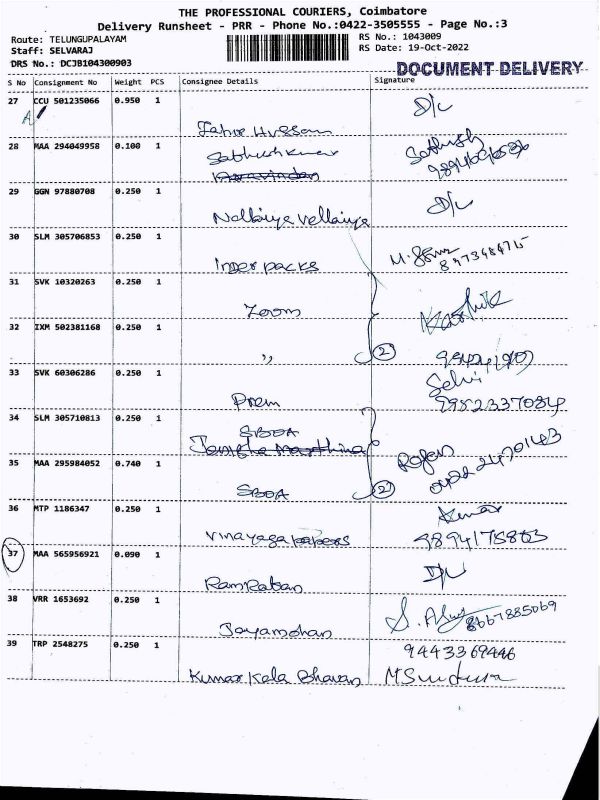 THE PROFESSIONAL COURIERS, Coimbatore
Delivery Runsheet - PRR - Phone No.:0422-3505555 - Page No.:3
Route: TELUNGUPALAYAM
RS No.: 1043009
Staff: SELVARAJ
RS Date: 19-Oct-2022
DRS No.: DCJB104300903
DOCUMENT DELIVERY
S No Consignment No Weight PCS Consignee Details Signature
27 CCU 501235066 0.950 1 D/L
A
28 MAA 294049958 0.100 1 Sathish
Sathishkumar
29 GGN 97880708 0.250 1 D/L
Nallaiya vellaiya
30 SLM 305706853 0.250 1
Inder packs
31 SVK 10320263 0.250 1
Zoom Karthik
32 IXM 502381168 0.250 1
,, 2
33 SVK 60306286 0.250 1 Selvi
Prem 9952337084
34 SLM 305710813 0.250 1
SBOA
35 MAA 295984052 0.740 1 Rajan
SBOA 2 0422 2470143
36 MTP 1186347 0.250 1 Kumar
Vinayaga papers 9894175853
37 MAA 565956921 0.090 1 D/L
Ram Ratan
38 VRR 1653692 0.250 1
Jayamohan 8667885069
39 TRP 2548275 0.250 1 9443369446
Kumar Kala Bhavan